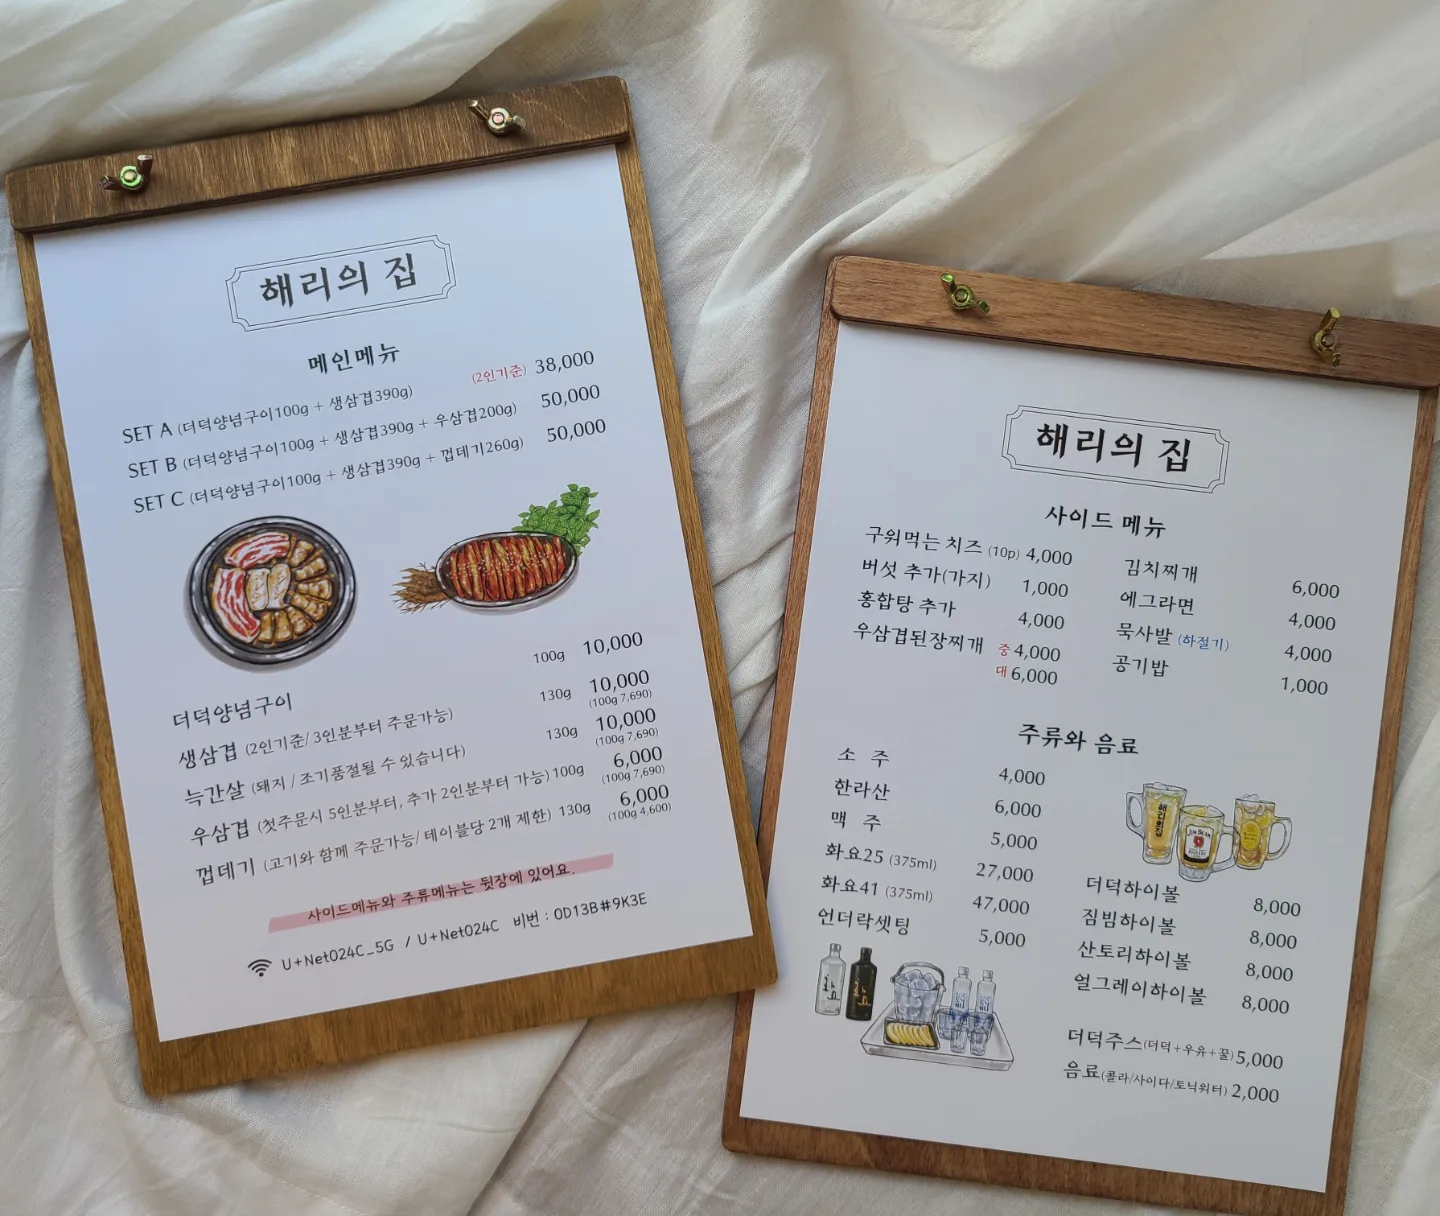 해리의 집
메인메뉴
SET A (더덕양념구이100g + 생삼겹390g) (2인기준) 38,000
SET B (더덕양념구이100g + 생삼겹390g + 우삼겹200g) 50,000
SET C (더덕양념구이100g + 생삼겹390g + 껍데기260g) 50,000
더덕양념구이 100g 10,000
생삼겹 (2인기준/ 3인분부터 주문가능) 130g 10,000
(100g 7,690)
늑간살 (돼지 / 조기품절될 수 있습니다) 130g 10,000
(100g 7,690)
우삼겹 (첫주문시 5인분부터, 추가 2인분부터 가능) 100g 6,000
(100g 7,690)
껍데기 (고기와 함께 주문가능/ 테이블당 2개 제한) 130g 6,000
(100g 4,600)
사이드메뉴와 주류메뉴는 뒷장에 있어요.
U+Net024C_5G / U+Net024C 비번 : 0D13B#9K3E
해리의 집
사이드 메뉴
구워먹는 치즈 (10p) 4,000
버섯 추가(가지) 1,000
홍합탕 추가 4,000
우삼겹된장찌개 중 4,000
대 6,000
김치찌개 6,000
에그라면 4,000
묵사발 (하절기) 4,000
공기밥 1,000
주류와 음료
소 주 4,000
한라산 6,000
맥 주 5,000
화요25 (375ml) 27,000
화요41 (375ml) 47,000
언더락셋팅 5,000
해리의집
JIM BEAM
더덕하이볼 8,000
짐빔하이볼 8,000
산토리하이볼 8,000
얼그레이하이볼 8,000
더덕주스(더덕+우유+꿀) 5,000
음료(콜라/사이다/토닉워터) 2,000